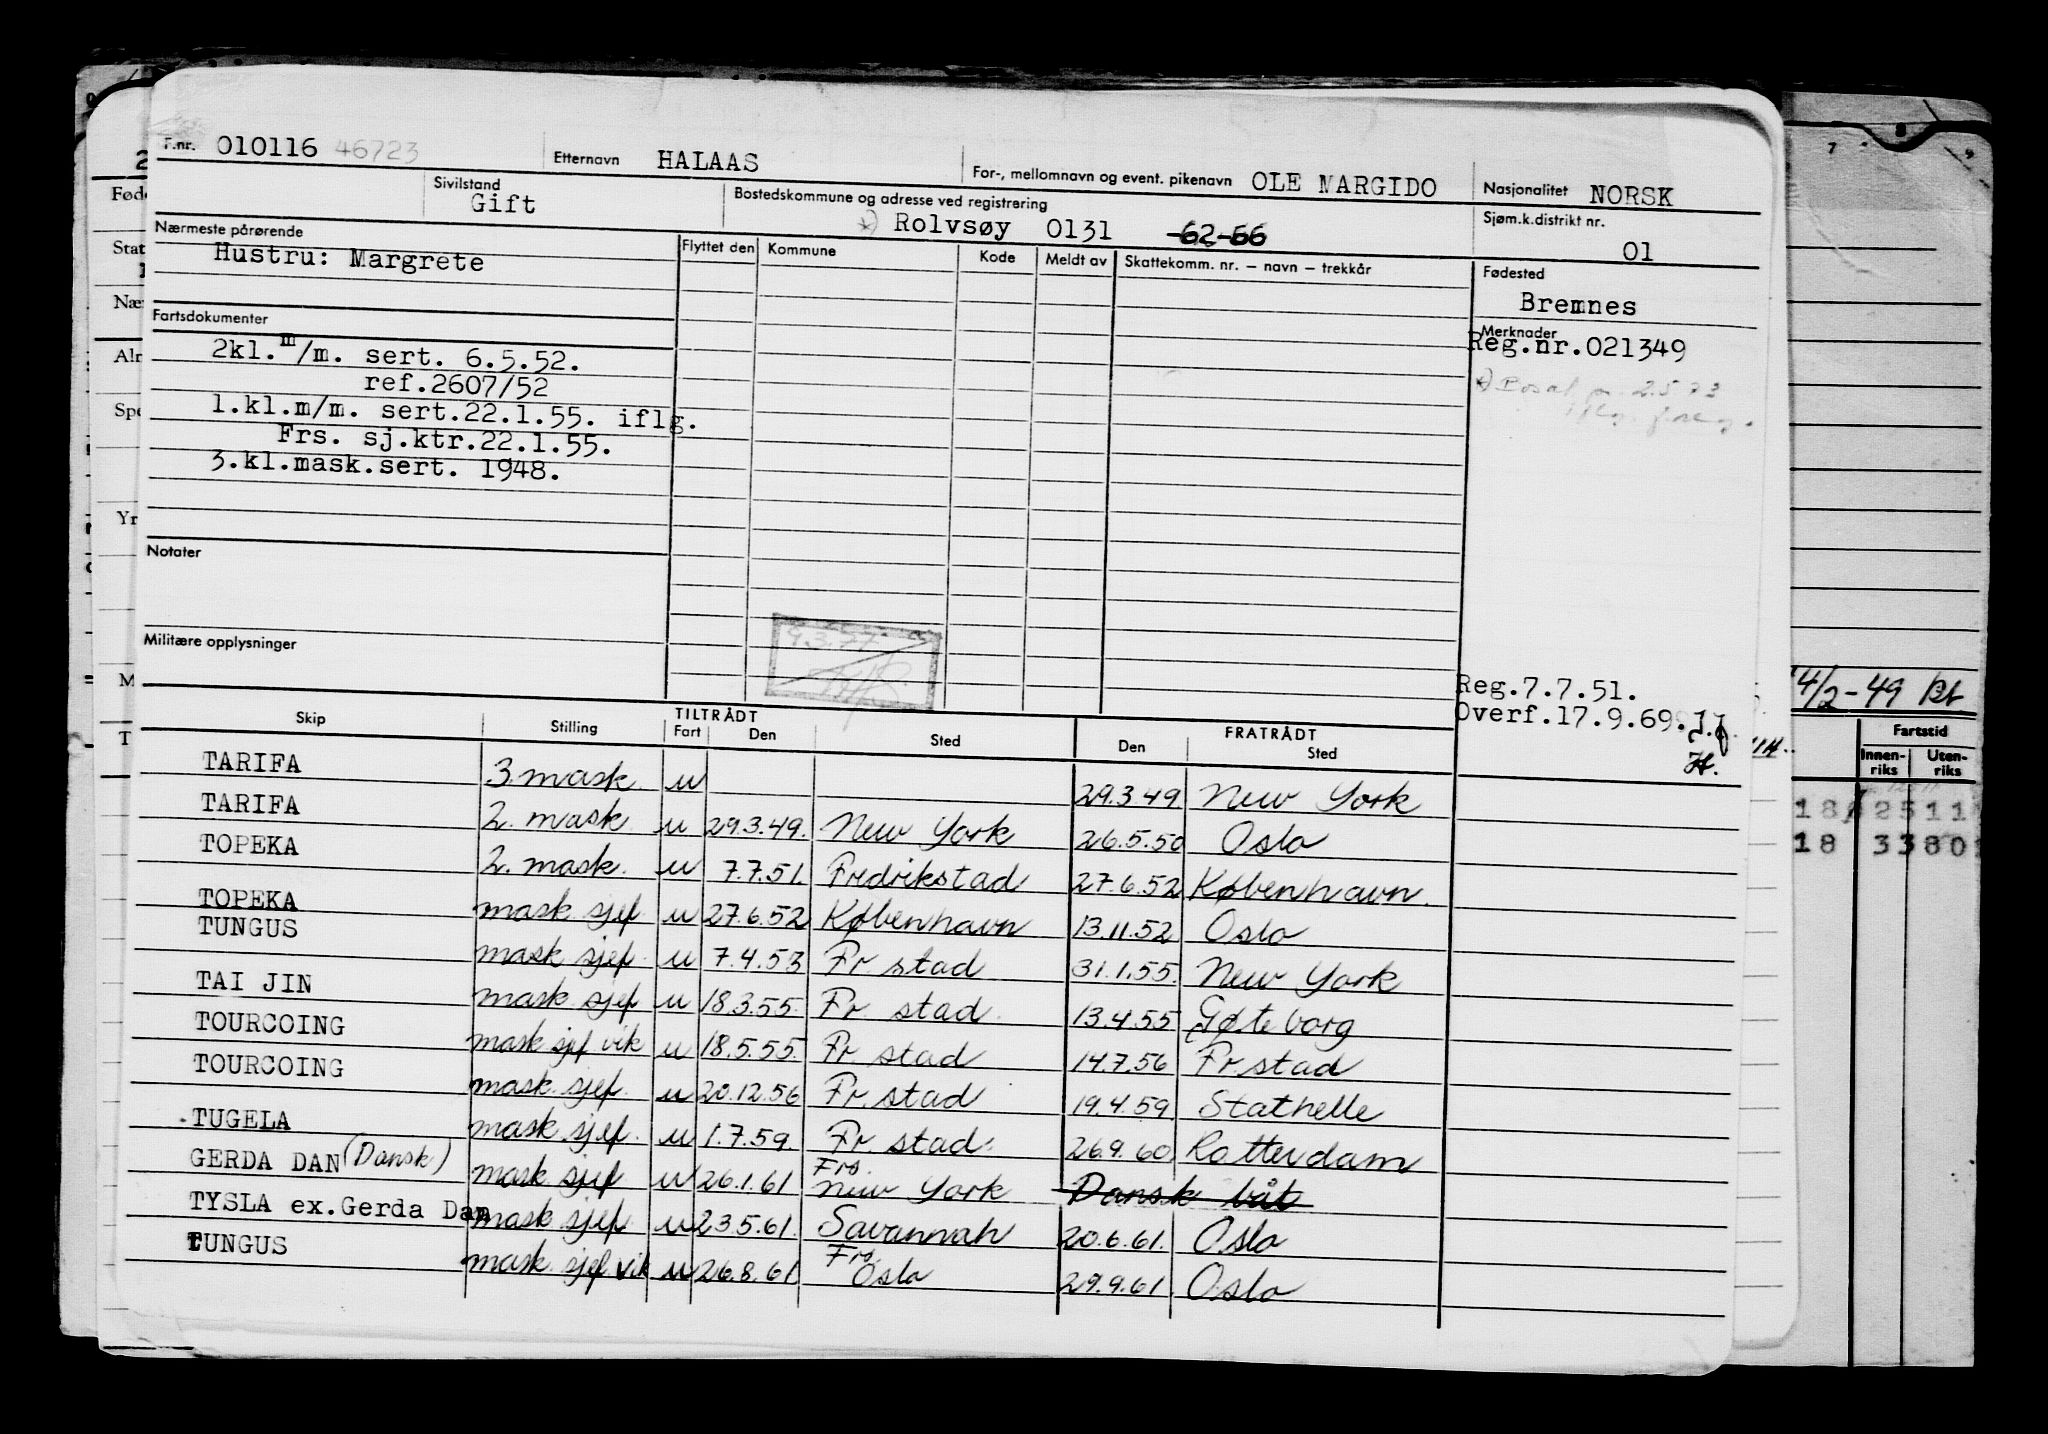 F.nr. 010116 46723 Etternavn HALAAS For-, mellomnavn og event. pikenavn OLE MARGIDO Nasjonalitet NORSK
Sivilstand Gift Bostedskommune og adresse ved registrering *) Rolvsøy 0131 62-66 Sjøm.k.distrikt nr. 01
Nærmeste pårørende Flyttet den Kommune Kode Meldt av Skattekomm. nr. – navn – trekkår Fødested
Hustru: Margrete Bremnes
Fartsdokumenter Merknader
2kl. m/m. sert. 6.5.52. Reg.nr.021349
ref.2607/52 *) 2.5.73
1.kl.m/m. sert.22.1.55. iflg.
Frs. sj.ktr.22.1.55.
3.kl.mask.sert. 1948.
Notater
Militære opplysninger
Reg.7.7.51.
Overf.17.9.69.
H.
Skip Stilling TILTRÅDT Fart Den Sted FRATRÅDT Den Sted
TARIFA 3 mask. u 29.3.49 New York
TARIFA 2. mask. u 29.3.49. New York 26.5.50 Oslo
TOPEKA 2. mask. u 7.7.51. Fredrikstad 27.6.52 København.
TOPEKA mask. sjef. u 27.6.52 København 13.11.52 Oslo
TUNGUS mask sjef. u 7.4.53 Fr stad 31.1.55. New York
TAI JIN mask. sjef u 18.3.55. Fr. stad. 13.4.55 Gøteborg
TOURCOING mask sjef vik u 18.5.55. Fr. stad 14.7.56 Fr.stad
TOURCOING mask. sjef. u 20.12.56 Fr. stad 19.4.59 Stathelle
TUGELA mask. sjef. u 1.7.59. Fr. stad. 26.9.60 Rotterdam
GERDA DAN (Dansk) mask sjef u 26.1.61 Frs. New York Dansk båt
TYSLA ex.Gerda Dan mask. sjef. u 23.5.61. Savannah 20.6.61. Oslo
TUNGUS mask. sjef vik u 26.8.61 Frs. Oslo 29.9.61 Oslo
7 8 9
14/2-49
Fartstid
Innen-riks Uten-riks
18 2511
18 33801